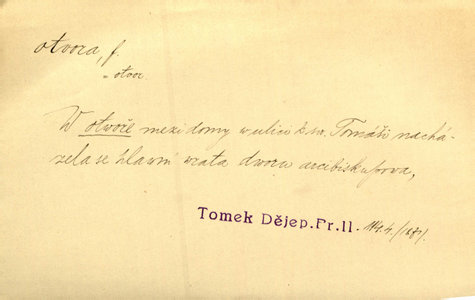 otvora, f.
= otvor.
W otvoře mezi domy w ulici k sw. Tomáši nachá-
zela se hlavní vrata dvoru arcibiskupova,
Tomek Dějep.Pr.II.